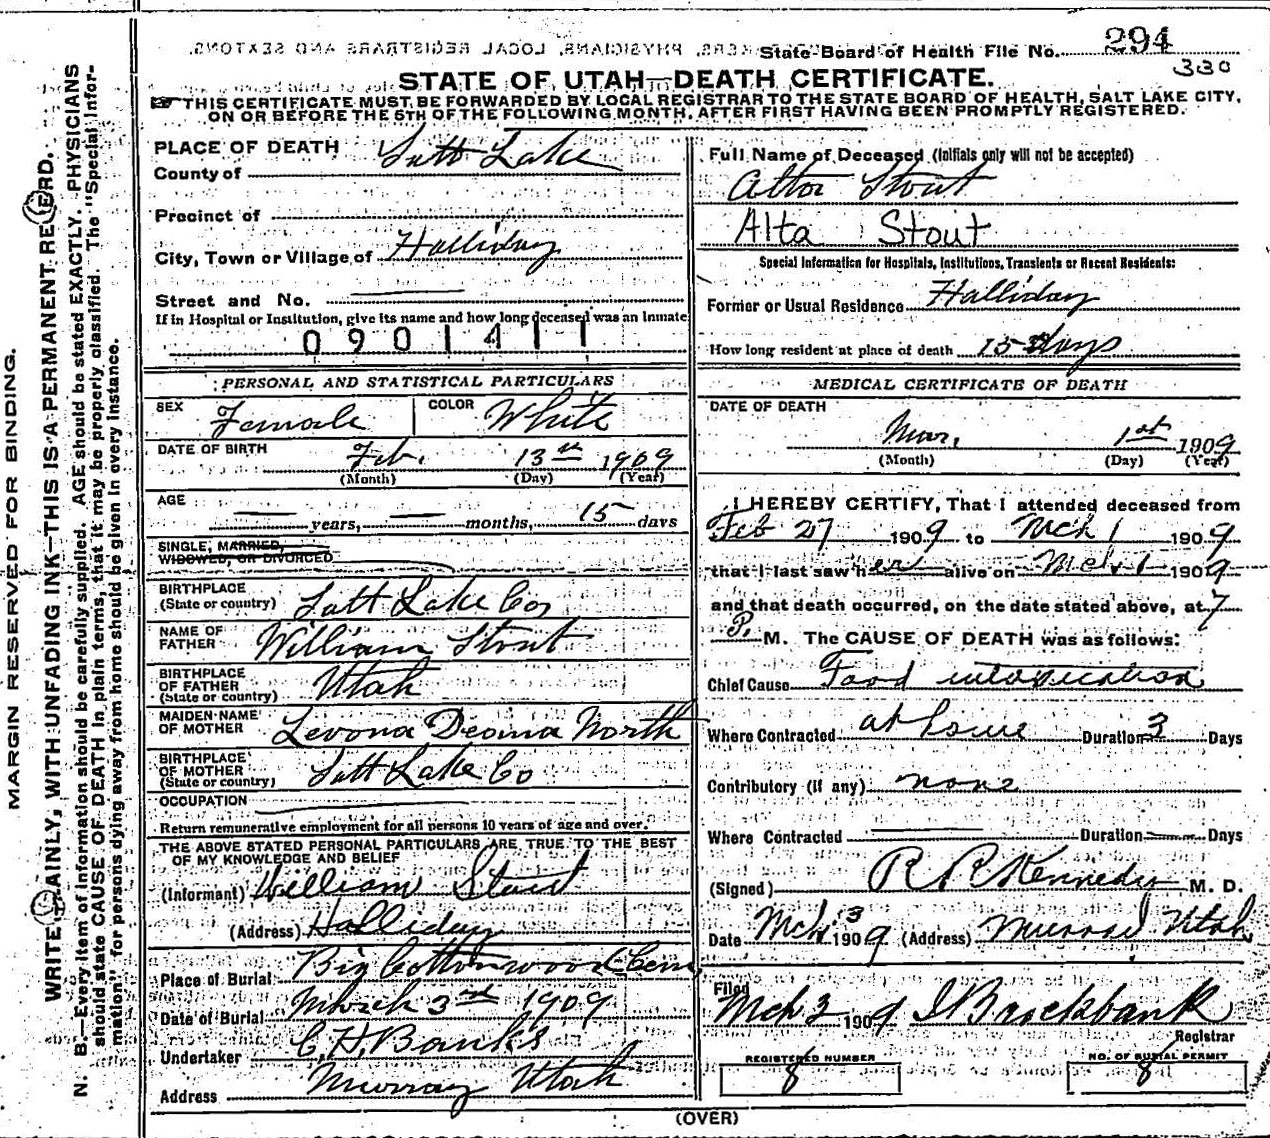 State Board of Health File No. 294
330
STATE OF UTAH—DEATH CERTIFICATE.
THIS CERTIFICATE MUST BE FORWARDED BY LOCAL REGISTRAR TO THE STATE BOARD OF HEALTH, SALT LAKE CITY,
ON OR BEFORE THE 5TH OF THE FOLLOWING MONTH, AFTER FIRST HAVING BEEN PROMPTLY REGISTERED.
MARGIN RESERVED FOR BINDING.
WRITE PLAINLY, WITH UNFADING INK—THIS IS A PERMANENT RECORD.
N. B.—Every item of information should be carefully supplied. AGE should be stated EXACTLY. PHYSICIANS
should state CAUSE OF DEATH in plain terms, that it may be properly classified. The "Special Infor-
mation" for persons dying away from home should be given in every instance.
PLACE OF DEATH
County of Salt Lake
Precinct of
City, Town or Village of Halliday
Street and No.
If in Hospital or Institution, give its name and how long deceased was an Inmate
0901411
PERSONAL AND STATISTICAL PARTICULARS
SEX Female COLOR White
DATE OF BIRTH Feb. 13th 1909
(Month) (Day) (Year)
AGE
— years, — months, 15 days
SINGLE, MARRIED,
WIDOWED, OR DIVORCED
BIRTHPLACE
(State or country) Salt Lake Co
NAME OF
FATHER William Stout
BIRTHPLACE
OF FATHER
(State or country) Utah
MAIDEN NAME
OF MOTHER Levona Desina North
BIRTHPLACE
OF MOTHER
(State or country) Salt Lake Co
OCCUPATION
Return remunerative employment for all persons 10 years of age and over.
THE ABOVE STATED PERSONAL PARTICULARS ARE TRUE TO THE BEST
OF MY KNOWLEDGE AND BELIEF
(Informant) William Stout
(Address) Halliday
Place of Burial Big Cottonwood Cem
Date of Burial March 3rd 1909
Undertaker C. H. Banks
Address Murray Utah
Full Name of Deceased (Initials only will not be accepted)
Altor Stout
Alta Stout
Special Information for Hospitals, Institutions, Transients or Recent Residents:
Former or Usual Residence Halliday
How long resident at place of death 15 days
MEDICAL CERTIFICATE OF DEATH
DATE OF DEATH
Mar. 1st 1909
(Month) (Day) (Year)
I HEREBY CERTIFY, That I attended deceased from
Feb 27 1909 to Mch 1 1909
that I last saw her alive on Mch. 1 1909
and that death occurred, on the date stated above, at 7
P. M. The CAUSE OF DEATH was as follows:
Chief Cause Food intoxication
Where Contracted at home Duration 3 Days
Contributory (if any) none
Where Contracted — Duration — Days
(Signed) R R Kennedy M. D.
Date Mch 3 1909 (Address) Murray Utah
Filed
Mch 3 1909 I Brockbank
Registrar
REGISTERED NUMBER
8
NO. OF BURIAL PERMIT
8
(OVER)